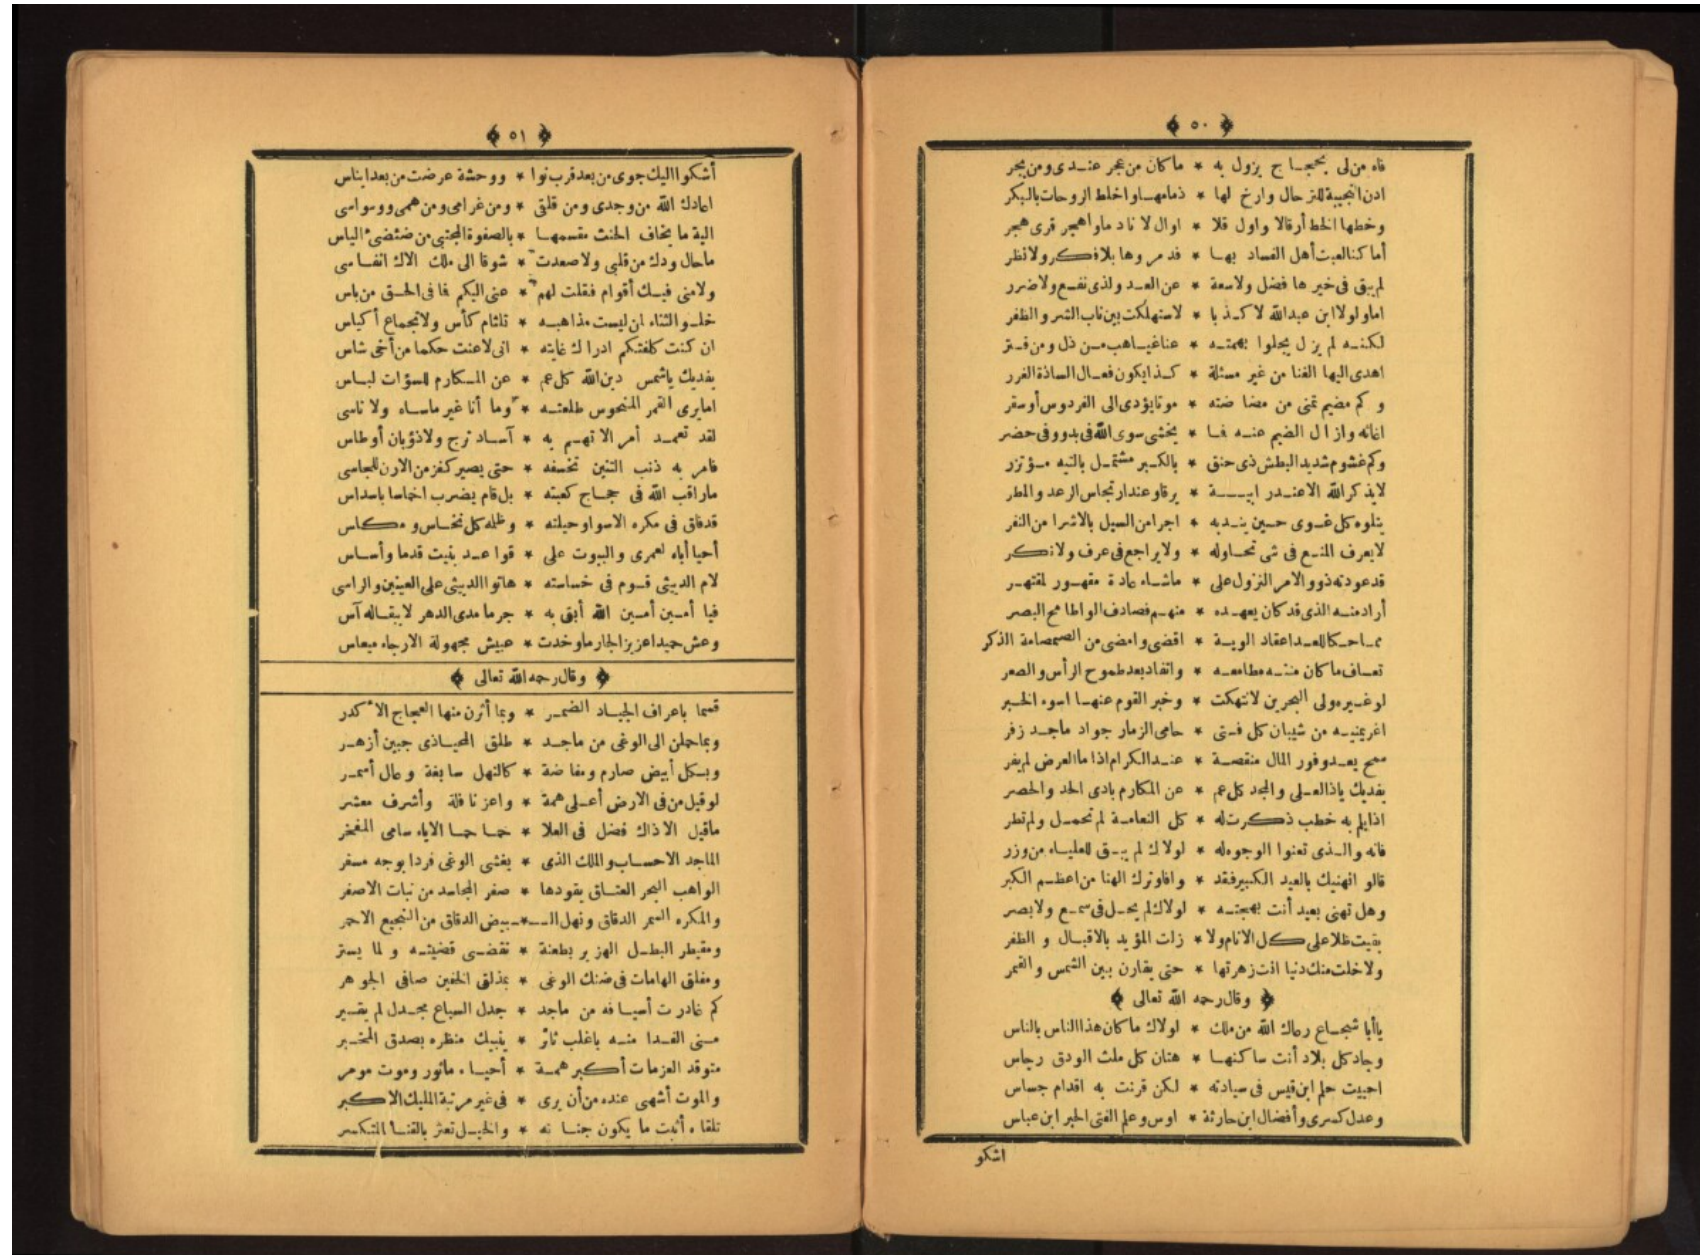 ﴿ ٥٠ ﴾
فاه من لى بحجـاج يزول به * ماكان من عجر عنـدى ومن بجر
ادن النجيبة للترحال وارخ لها * ذمامهـا واخلط الروحات بالبكر
وخطها الخط أرقالا واول قلا * اوال لا ناد ماواهجر قرى هجر
أما كنا لعبت أهل الفساد بهـا * فدمروها بلا فكـر ولا نظر
لم يبق فى خيرها فضل ولا سعة * عن العـد ولذى نفـع ولا ضرر
اما ولولا ابن عبدالله لا كـذبا * لاستهلكت بين ناب الشر والظفر
لكنـه لم يزل يجلوا بهمتـه * عنا غياهب مـن ذل ومن قـتر
اهدى اليها الغنا من غير مسئلة * كـذا يكون فعـال السادة الغرر
وكم مضيم تمنى من مضاضته * موتا يؤدى الى الفردوس أوسقر
اغاثه وازال الضيم عنـه فـا * يخشى سوى الله فى بدو وفى حضر
وكم غشوم شديد البطش ذى حنق * بالكـبر مشتمـل بالتيه مـؤتزر
لا يذكر الله الا عنـدرا بيـة * يرقاو عند ارتجاس الرعد والمطر
يتلوه كل غـوى حـين ينـدبه * اجرا من السيل بالاشرا من النفر
لا يعرف المنـع فى شى تحـاوله * ولا يراجع فى عرف ولا نكـر
قد عودته ذوو الامر النزول على * ماشـاء عادة مقهـور لمقتهـر
أراد منـه الذى قد كان يعهـده * منهـم فصادف الواطامح البصر
ممـاحكا للعـدا عقاد الويـة * اقضى وامضى من الصمصامة الذكر
تعـاف ماكان منتـه مطامعـه * وانقاد بعد طموح الرأس والصعر
لو غـيره ولى البحرين لانتهكت * وخبر القوم عنهـا اسوء الخـبر
اغر ينميـه من شيبان كل فـتى * حامى الزمار جواد ماجـد زفر
سمح يعـد وفور المال منقصـة * عنـد الكرام اذا ما العرض لم يفر
يفديك ياذا العـلى والمجد كل عم * عن المكارم بادى الحد والحصر
اذا يلم به خطب ذكـرت له * كل النعامـة لم تحمـل ولم تطر
فانه والـذى تعنوا الوجوه له * لولاك لم يبـق للعليـاء من وزر
قالو انهنيك بالعيد الكبير فقد * وافاو ترك الهنا من اعظـم الكبر
وهل تهنى بعيد أنت بهجتـه * لولاك لم يحـل فى سمـع ولا بصر
بقيت ظلا على كـل الانام ولا * زلت المؤيد بالاقبـال والظفر
ولا خلت منك دنيا انت زهرتها * حتى يقارن بين الشمس والقمر
﴿ وقال رحمه الله تعالى ﴾
يا أبا شجـاع رعاك الله من ملك * لولاك ماكان هذا الناس بالناس
وجاد كل بلاد أنت ساكنهـا * هتان كل ملث الودق رجاس
احييت حلم ابن قيس فى سيادته * لكن قرنت به اقدام جساس
وعدل كسرى وأفضال ابن حارثة * اوس وعلم الفتى الحبر ابن عباس
اشكو
﴿ ٥١ ﴾
أشكوا اليك جوى من بعد قرب نوا * ووحشة عرضت من بعد ايناس
اعاذك الله من وجدى ومن قلقى * ومن غرامى ومن همى ووسواسى
الية ما يخاف الحنث مقسمهـا * بالصفوة المجتبى من ضئضئ الياس
ماحال ودك من قلبى ولا صعدت * شوقا الى ملك الاك انفـاسى
ولامنى فيـك أقوام فقلت لهم * عنى اليكم فا فى الحـق من باس
خلـو الثناء ان ليست مذاهبـه * تلثام كأس ولا تجماع أكياس
ان كنت كلفتكم ادراك غايته * انى لاعنت حكما من أخى شاس
يفديك ياشمس دين الله كل عم * عن المـكارم للسوٓات لبـاس
اما يرى القمر المنحوس طلعتـه * وما أنا غير ماسـاه ولا ناسى
لقد تعمـد أمر الاتهـم به * آسـاد ترج ولا ذؤبان أوطاس
فامر به ذنب التنين تخسفه * حتى يصير كفزمن الارن للجاسى
ماراقب الله فى حجـاج كعبته * بل قام يضرب اخماسا باسداس
قد فاق فى مكره الاسوا وحيلته * وظلمه كل نخـاس ومكـاس
أحيا أباه لعمرى والبيوت على * قواعـد بنيت قدما وأسـاس
لام الدبيثى قـوم فى خساسته * هاتوا الدبيثى على العينين والراس
فيا أمـين أمـين الله أبق به * جرما مدى الدهر لا يبقـاله آس
وعش حميدا عزيز الجار ماوخدت * عيش مجهولة الارجاء ميعاس
﴿ وقال رحمه الله تعالى ﴾
قسما باعراف الجيـاد الضمـر * وبما أثرن منها العجاج الاكدر
وبما حملن الى الوغى من ماجـد * طلق المحيـا ذى جبين أزهـر
وبـكل أبيض صارم ومفاضة * كالنهل سابغة وعال أسمـر
لوقيل من فى الارض أعـلى همة * واعز نافلة وأشرف معشر
ماقيل الا ذاك فضل فى العلا * خمـا حمـا الاباه سامى المفخر
الماجد الاحسـاب والملك الذى * يغشى الوغى فردا بوجه مسفر
الواهب البحر العتـاق يقودها * صفر المجاسد من نبات الاصفر
والمكره السمر الدقاق ونهل الـ * ـبيض الدقاق من النجيع الاحمر
ومقيطر البطـل الهزبر بطعنة * تقضـى قضيتـه ولما يستر
ومفلق الهامات فى ضنك الوغى * بمذلق الخفين صافى الجوهر
كم غادرت أسيـافه من ماجد * جدل السباع مجـدل لم يقـبر
مـنى الفـدا منـه باغلب ثائر * ينبيك منظره بصدق المخـبر
متوقد العزمات أكـبر همـة * أحيـاء ماثور وموت موهر
والموت أشهى عنده من أن يرى * فى غير مرتبة المليك الاكـبر
تلقاه أثبت ما يكون جنـانه * والخيـل تعثر بالقنـا المتكسر